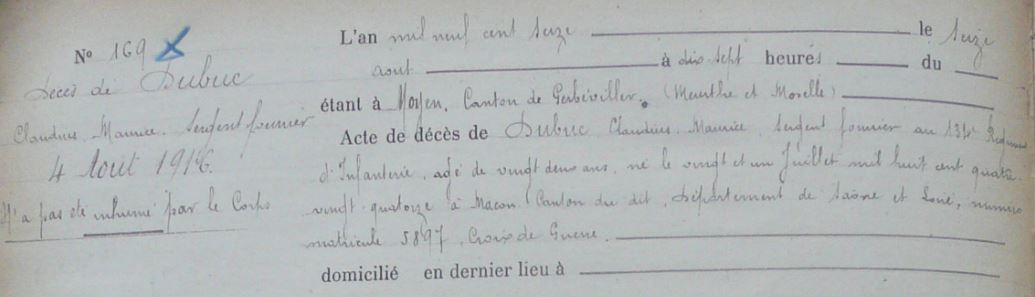 Nº 169
Décès de Dubuc
Claudius, Maurice. Sergent fourrier
4 Aout 1916.
N'a pas été inhumé par le Corps
L'an mil neuf cent seize le seize
aout à dix sept heures du
étant à Moyen, Canton de Gerbéviller. (Meurthe et Moselle)
Acte de décès de Dubuc Claudius, Maurice, Sergent fourrier au 134e Régiment
d'Infanterie, agé de vingt deux ans, né le vingt et un Juillet mil huit cent quatre
vingt quatorze à Macon Canton du dit, Département de Saône et Loire, numéro
matricule 5897, Croix de Guerre.
domicilié en dernier lieu à